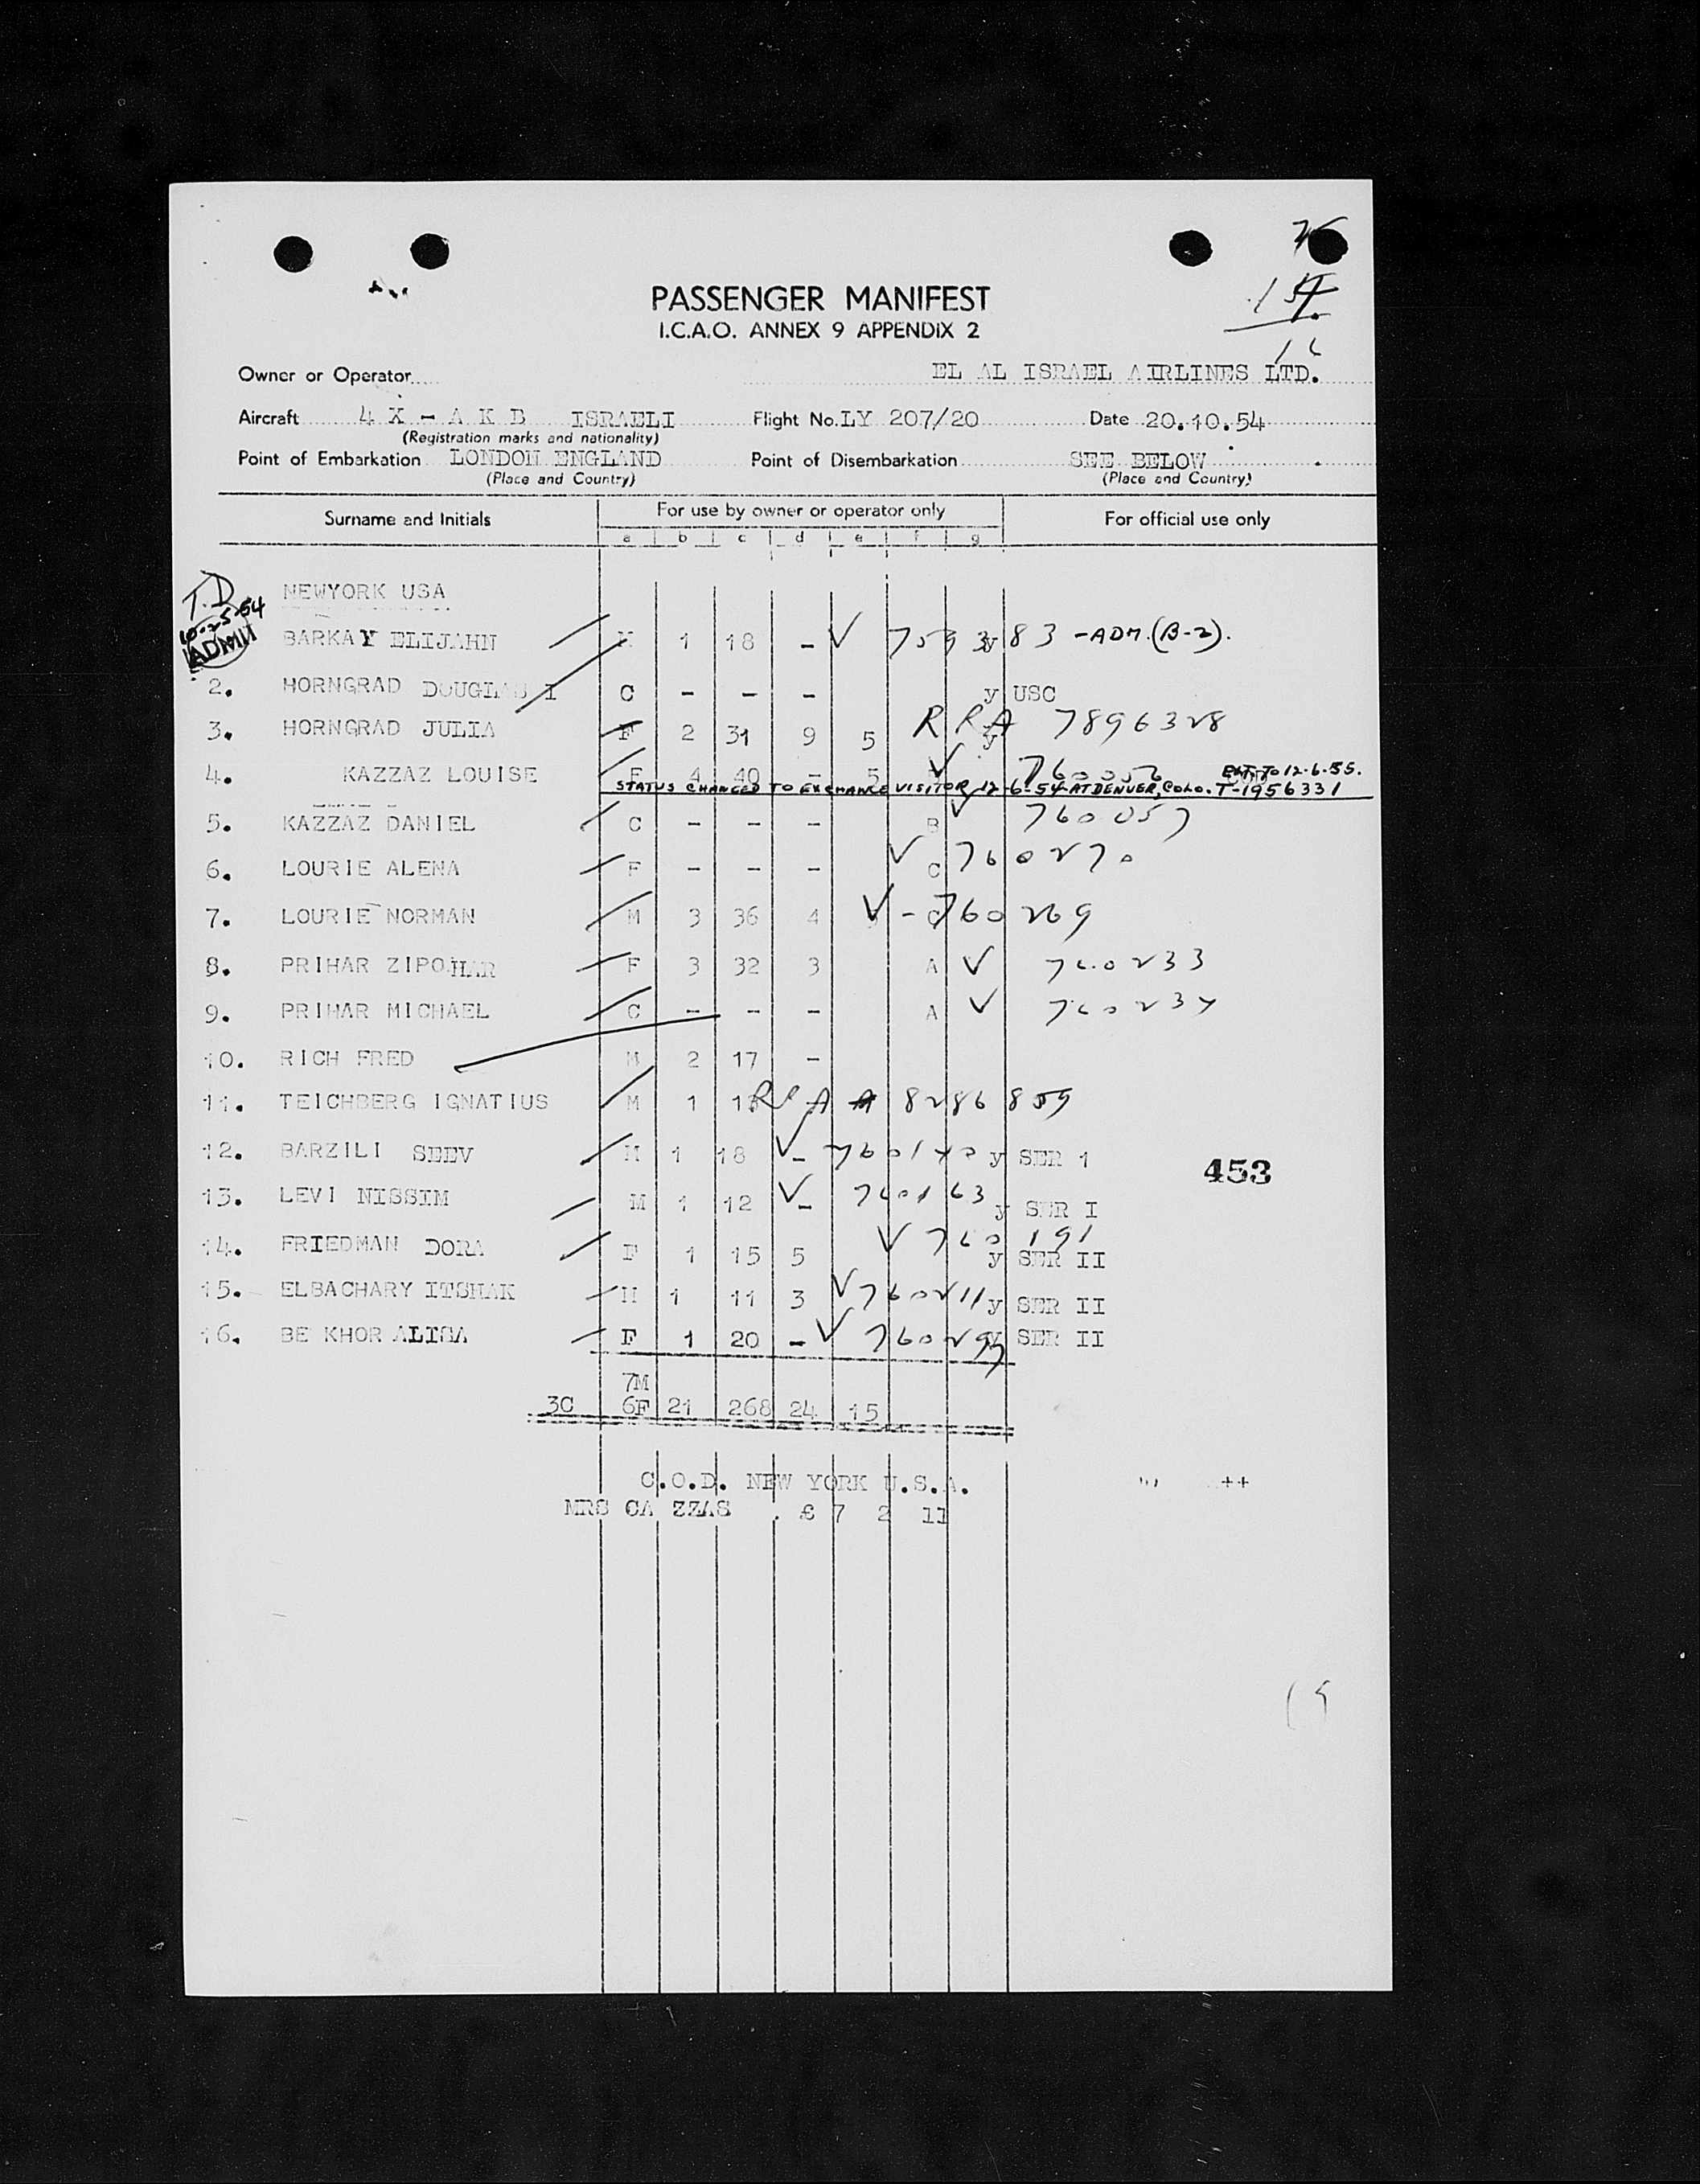 PASSENGER MANIFEST
I.C.A.O. ANNEX 9 APPENDIX 2
Owner or Operator EL AL ISRAEL AIRLINES LTD.
Aircraft 4 X - A K B ISRAELI Flight No. LY 207/20 Date 20.10.54
(Registration marks and nationality)
Point of Embarkation LONDON ENGLAND Point of Disembarkation SEE BELOW
(Place and Country) (Place and Country)
Surname and Initials For use by owner or operator only For official use only
a b c d e f g
T.D NEWYORK USA
10-25-54
ADMN BARKAY ELIJAHN M 1 18 - ✓ 75938 y 83 -ADM.(B-2).
2. HORNGRAD DOUGLAS I C - - - y USC
3. HORNGRAD JULIA F 2 31 9 5 RRA y 7896328
4. KAZZAZ LOUISE F 4 40 - 5 ✓ 760056 EXT. TO 12-6-55.
STATUS CHANGED TO EXCHANGE VISITOR 12-6-54 AT DENVER, COLO. T-1956331
5. KAZZAZ DANIEL C - - - B ✓ 760057
6. LOURIE ALENA F - - - ✓ C 760270
7. LOURIE NORMAN M 3 36 4 ✓ - C 760269
8. PRIHAR ZIPOHAR F 3 32 3 A ✓ 760233
9. PRIHAR MICHAEL C - - - A ✓ 760234
10. RICH FRED M 2 17 -
11. TEICHBERG IGNATIUS M 1 RRA A 8286859
12. BARZILI SEEV M 1 18 ✓ - 760140 y SER 1
453
13. LEVI NISSIM M 1 12 ✓ - 760163 y SER I
14. FRIEDMAN DORA F 1 15 5 ✓ 760191 y SER II
15. ELBACHARY ITSHAK M 1 11 3 ✓ 760211 y SER II
16. BE KHOR ALISA F 1 20 - ✓ 760297 y SER II
7M
3C 6F 21 268 24 15
C.O.D. NEW YORK U.S.A. ++
MRS CA ZZAS . £ 7 2 11